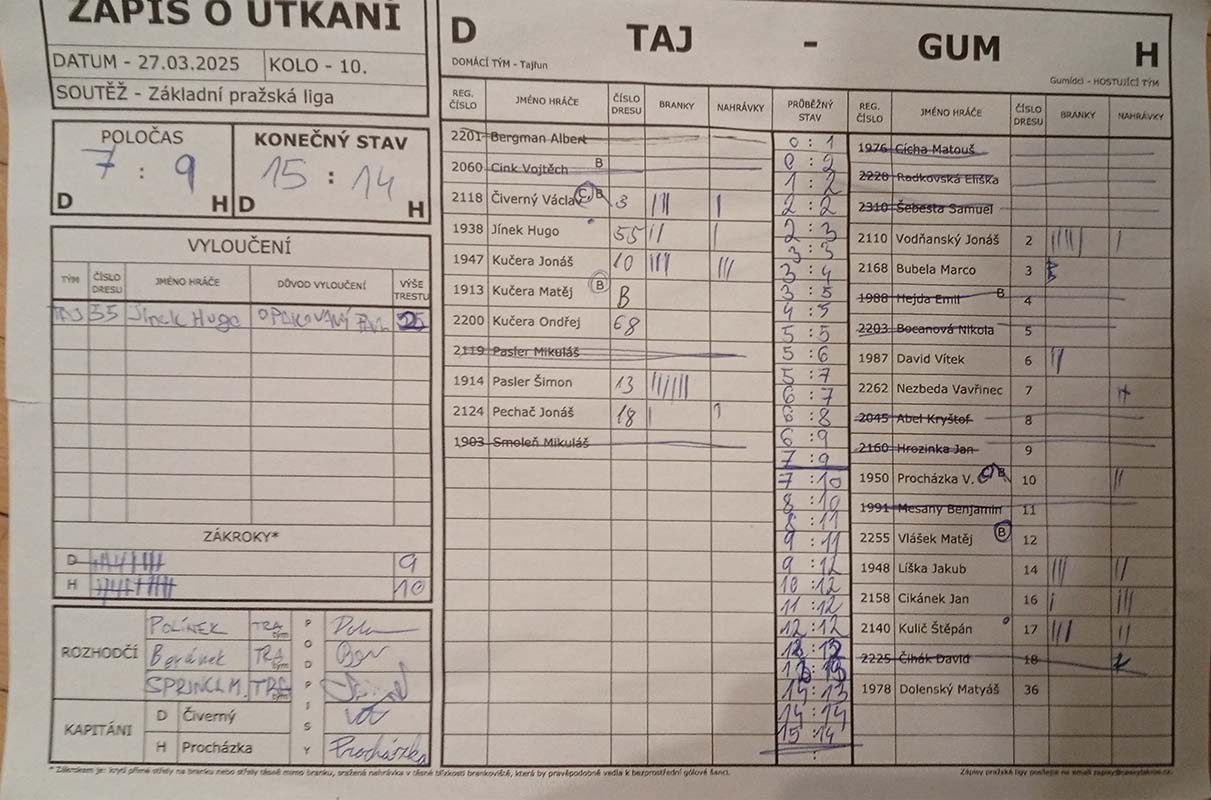 ZÁPIS O UTKÁNÍ
DATUM - 27.03.2025 KOLO - 10.
SOUTĚŽ - Základní pražská liga
POLOČAS KONEČNÝ STAV
7 : 9 15 : 14
D H D H
VYLOUČENÍ
TÝM ČÍSLO DRESU JMÉNO HRÁČE DŮVOD VYLOUČENÍ VÝŠE TRESTU
TAJ 55 Jínek Hugo
ZÁKROKY*
D 9
H 10
ROZHODČÍ
POLÍNEK TRA tým
Beránek TRA tým
SPRINCLM. TRA tým
PODPISY
KAPITÁNI
D Čiverný
H Procházka Procházka
D TAJ - GUM H
DOMÁCÍ TÝM - Tajfun Gumídci - HOSTUJÍCÍ TÝM
REG. ČÍSLO JMÉNO HRÁČE ČÍSLO DRESU BRANKY NAHRÁVKY
2201 Bergman Albert
2060 Cink Vojtěch B
2118 Čiverný Václav C B 3 ||| |
1938 Jínek Hugo 55 || |
1947 Kučera Jonáš 10 ||| |||
1913 Kučera Matěj B B
2200 Kučera Ondřej 68
2119 Pasler Mikuláš
1914 Pasler Šimon 13 ||||||
2124 Pechač Jonáš 18 | |
1903 Smoleň Mikuláš
PRŮBĚŽNÝ STAV
0 : 1
0 : 2
1 : 2
2 : 2
2 : 3
3 : 3
3 : 4
3 : 5
4 : 5
5 : 5
5 : 6
5 : 7
6 : 7
6 : 8
6 : 9
7 : 9
7 : 10
8 : 10
8 : 11
9 : 11
9 : 12
10 : 12
11 : 12
12 : 12
13 : 13
14 : 14
15 : 14
:
REG. ČÍSLO JMÉNO HRÁČE ČÍSLO DRESU BRANKY NAHRÁVKY
1976 Cícha Matouš
2228 Radkovská Eliška
2310 Šebesta Samuel
2110 Vodňanský Jonáš 2 ||||| |
2168 Bubela Marco 3
1988 Hejda Emil B 4
2203 Bocanová Nikola 5
1987 David Vítek 6 ||
2262 Nezbeda Vavřinec 7
2045 Abel Kryštof 8
2160 Hrozinka Jan 9
1950 Procházka V. C B 10 ||
1991 Mesany Benjamin 11
2255 Vlášek Matěj B 12
1948 Líška Jakub 14 ||| ||
2158 Cikánek Jan 16 | |||
2140 Kulič Štěpán 17 ||| ||
2225 Čihák David 18
1978 Dolenský Matyáš 36
* Zákrokem je: krytí přímé střely na branku nebo střely těsně mimo branku, sražená nahrávka v těsné blízkosti brankoviště, která by pravděpodobně vedla k bezprostřední gólové šanci.